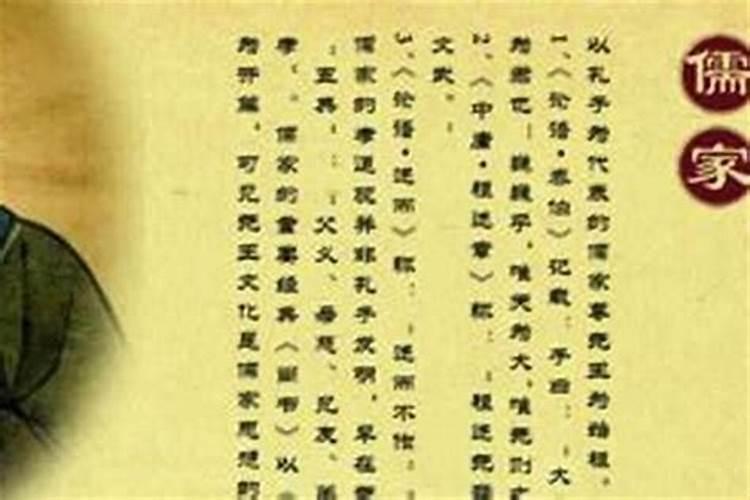 儒家
以孔子为代表的儒家尊尧王为始祖。
1、《论语·泰伯》记载：子曰：“大
为君也！巍巍乎，唯天为大，唯尧则
2、《中庸·祖述章》称：“祖述尧
文武。”
3、《论语·述而》称：“述而不作，
儒家的孝道观并非孔子发明，早在
“五典”：“父义、母慈、兄友、
孝”。儒家的重要经典《尚书》以
为开篇。可见尧王文化是儒家思想的